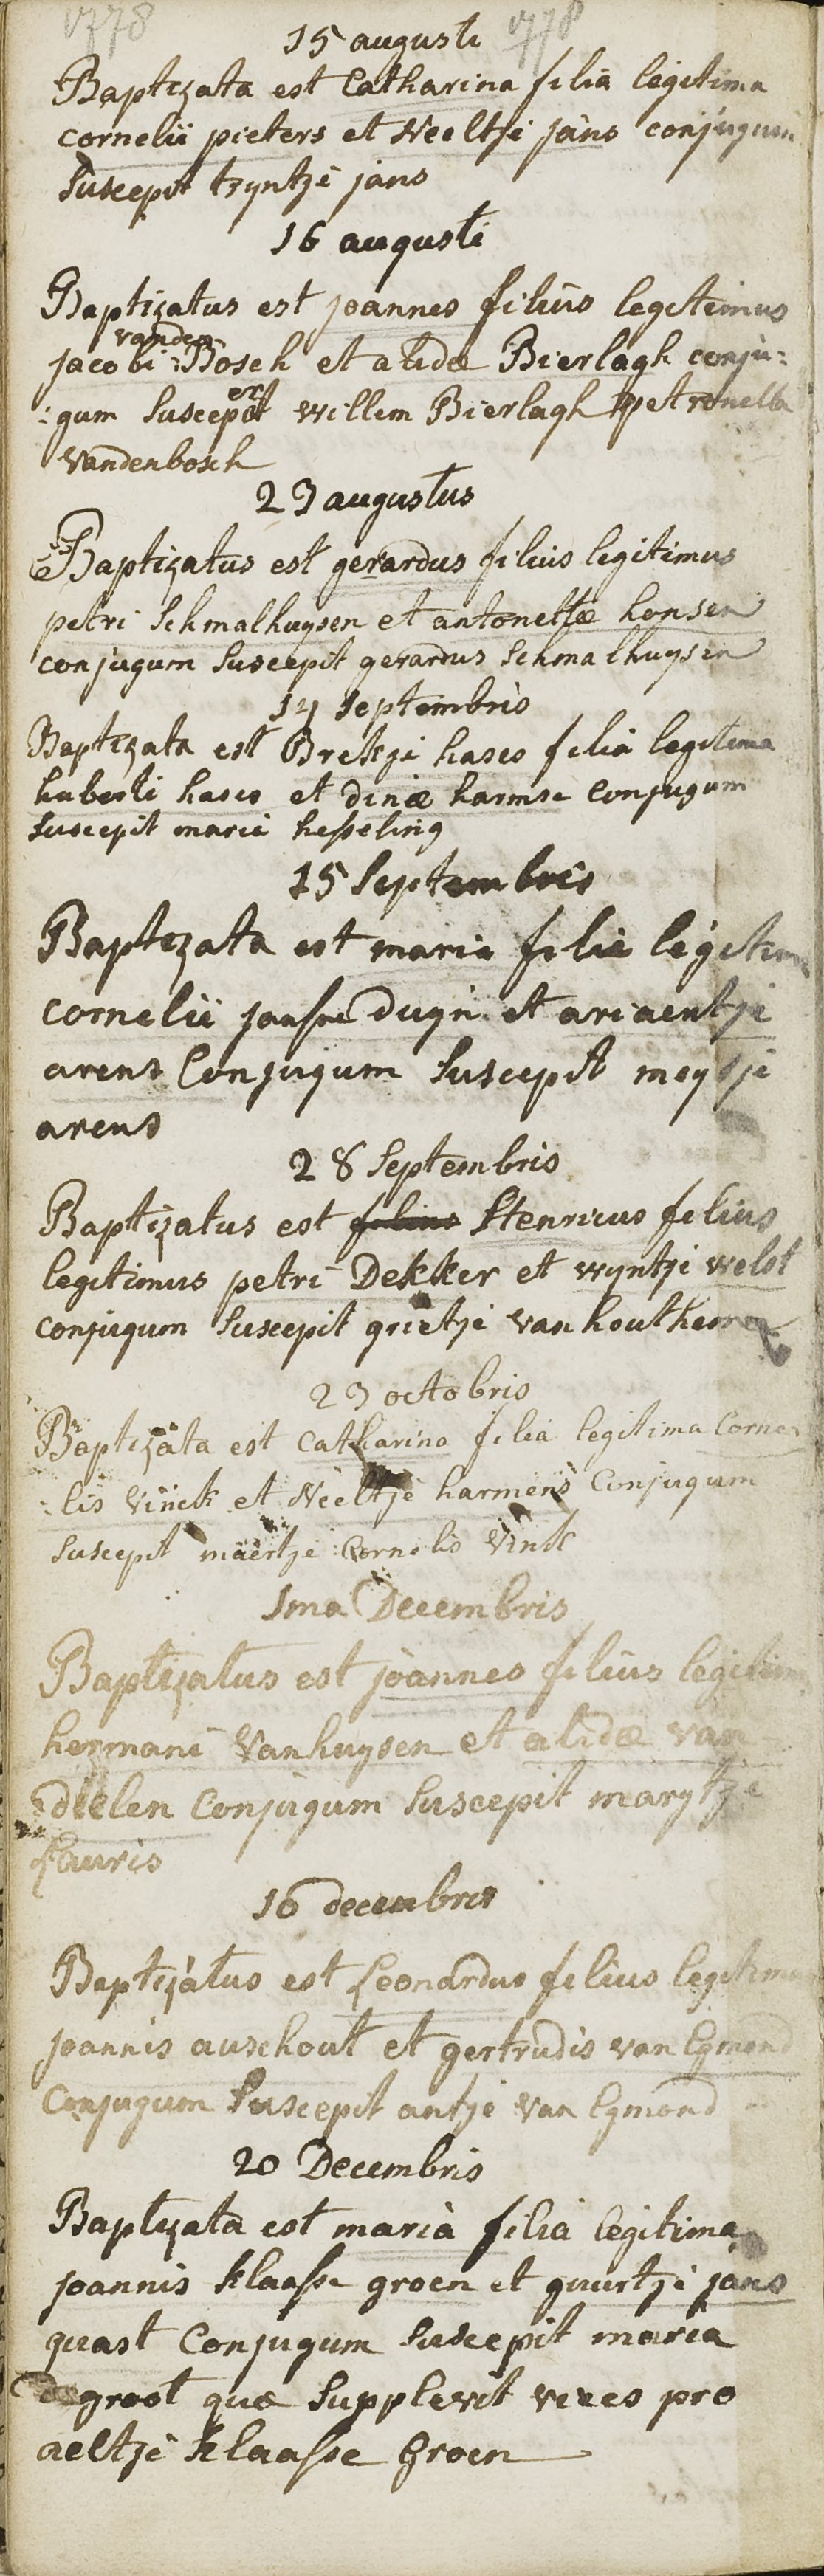 1778 1778
15 augusti
Baptizata est Catharina filia legitima
cornelii pieters et Neeltje jans conjugum
Suscepit tryntje jans
16 augusti
Baptizatus est joannes filius legitimus
vanden
jacobi Bosch et alidæ Bierlagh conju:
er
:gum Suscepit willem Bierlagh petronella
vandenbosch
23 augustus
Baptizatus est gerardus filius legitimus
petri Schmalhuysen et antonettæ honsen
conjugum Suscepit gerardus Schmalhuysen
14 septembris
Baptizata est Brekje hases filia legitima
huberti hases et dinæ harmse Conjugum
Suscepit marie hesseling
15 Septembris
Baptizata est maria filia legitima
cornelii jansse Duyn et ariaentje
arens Conjugum Suscepit meytje
arens
28 Septembris
Baptizatus est filius Henricus filius
legitimus petri Dekker et wyntje welst
conjugum Suscepit grietje van
23 octobris
Baptizata est Catharina filia legitima Corne
:lis Vinck et Neeltje harmens Conjugum
Suscepit maertje Cornelis Vink
1ma Decembris
Baptizatus est joannes filius legitim
hermani Vanhuysen et alidæ van
dielen Conjugum Suscepit marytje
Lauris
10 decembris
Baptizatus est Leonardus filius legitimus
joannis auschout et gertrudis van Egmond
Conjugum Suscepit antje van Egmond
20 Decembris
Baptizata est maria filia legitima
joannis Klaasse groen et guurtje jans
quast Conjugum Suscepit maria
de groot quæ Supplevit vices pro
aeltje Klaasse Groen